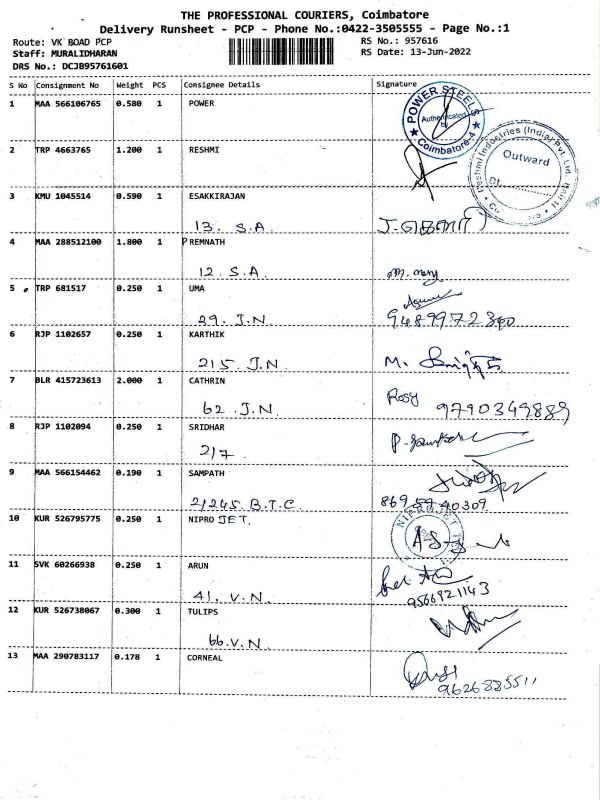 THE PROFESSIONAL COURIERS, Coimbatore
Delivery Runsheet - PCP - Phone No.:0422-3505555 - Page No.:1
Route: VK BOAD PCP RS No.: 957616
Staff: MURALIDHARAN RS Date: 13-Jun-2022
DRS No.: DCJB95761601
S No Consignment No Weight PCS Consignee Details Signature
1 MAA 566106765 0.580 1 POWER
POWER STEELS
Authenticated
by
Coimbatore-4
2 TRP 4663765 1.200 1 RESHMI
Reshmi Industries (India) Pvt. Ltd.
Outward
3 KMU 1045514 0.590 1 ESAKKIRAJAN
13. S.A
4 MAA 288512100 1.800 1 PREMNATH
12. S.A
5 TRP 681517 0.250 1 UMA
29. J.N 9489972390
6 RJP 1102657 0.250 1 KARTHIK
215. J.N M.
7 BLR 415723613 2.000 1 CATHRIN
62. J.N Rosy 9790349889
8 RJP 1102094 0.250 1 SRIDHAR
217
9 MAA 566154462 0.190 1 SAMPATH
21245. B.T.C
10 KUR 526795775 0.250 1 NIPRO JET.
NIPRO JET
11 SVK 60266938 0.250 1 ARUN
41. V.N 9566921143
12 KUR 526738067 0.300 1 TULIPS
66. V.N
13 MAA 290783117 0.178 1 CORNEAL
9626885511